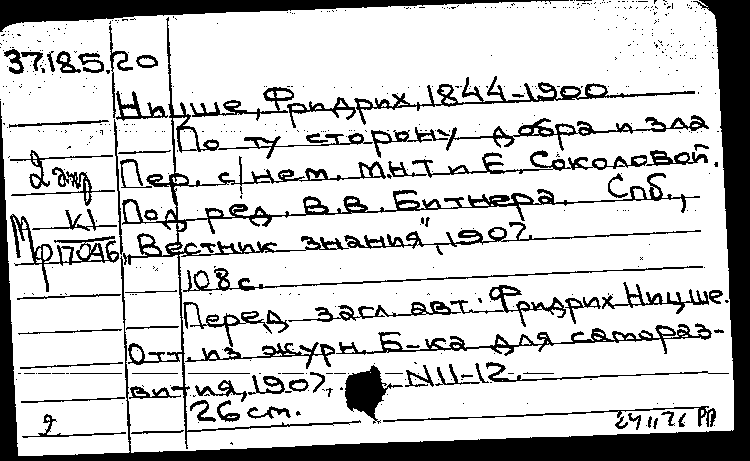 37.18.5.20
Ницше, Фридрих, 1844-1900.
По ту сторону добра и зла
2 экз Пер. с нем. М.Н.Т и Е. Соколовой.
К1 Под ред. В.В. Битнера. Спб.,
Мф17046 „Вестник знания", 1907.
108 с.
Перед загл. авт.: Фридрих Ницше.
Отт. из журн. Б-ка для самораз-
вития, 1907, N11-12.
26 см.